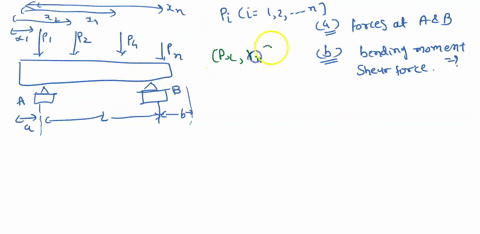 xn
x2 x1
x1
P1 P2 P4 Pn
A B
a L b
Pi (i = 1,2, ---- n]
(Px, xi)
(a) forces at A & B
(b) bending moment
Shear force. =?